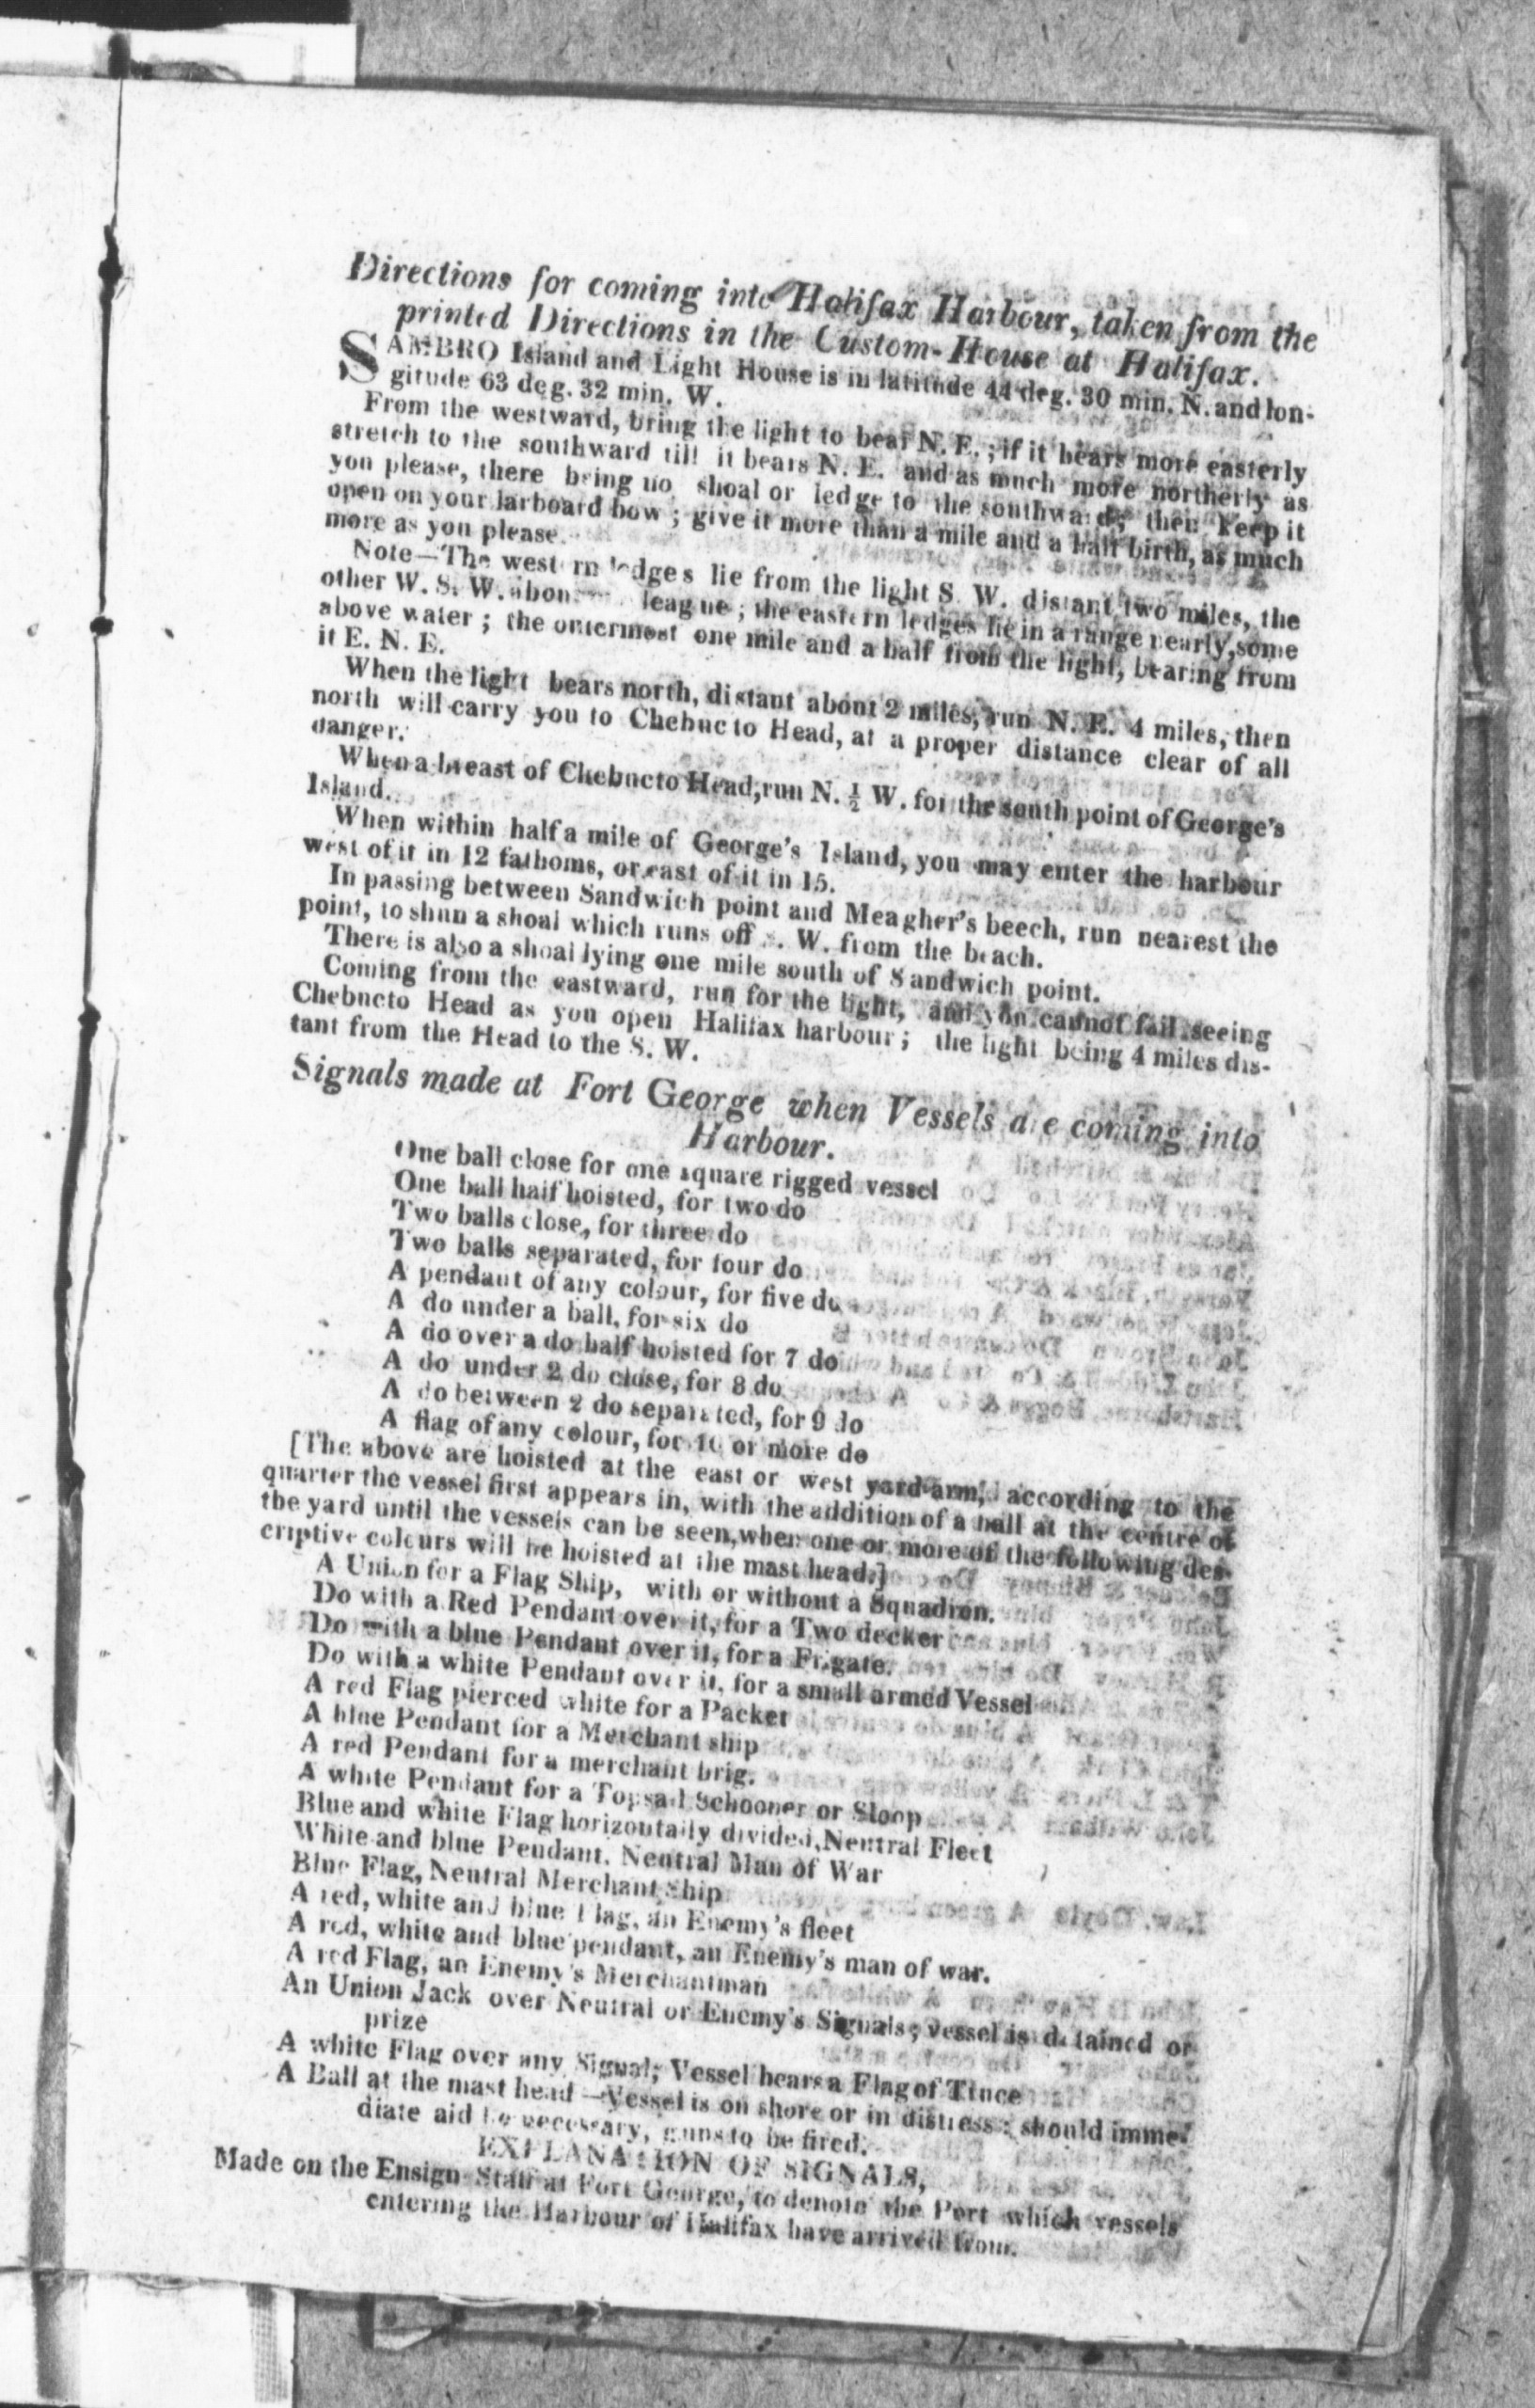 Directions for coming into Halifax Harbour, taken from the
printed Directions in the Custom-House at Halifax.
SAMBRO Island and Light House is in latitude 44 deg. 30 min. N. and lon-
gitude 63 deg. 32 min. W.
From the westward, bring the light to bear N. E.; if it bears more easterly
stretch to the southward till it bears N. E. and as much more northerly as
you please, there being no shoal or ledge to the southward; then keep it
open on your larboard bow; give it more than a mile and a half birth, as much
more as you please.
Note—The western ledges lie from the light S. W. distant two miles, the
other W. S. W. about league; the eastern ledges lie in a range nearly, some
above water; the outermost one mile and a half from the light, bearing from
it E. N. E.
When the light bears north, distant about 2 miles, run N. E. 4 miles, then
north will carry you to Chebucto Head, at a proper distance clear of all
danger.
When a breast of Chebucto Head, run N. ½ W. for the south point of George's
Island.
When within half a mile of George's Island, you may enter the harbour
west of it in 12 fathoms, or east of it in 15.
In passing between Sandwich point and Meagher's beech, run nearest the
point, to shun a shoal which runs off S. W. from the beach.
There is also a shoal lying one mile south of Sandwich point.
Coming from the eastward, run for the light, and you cannot fail seeing
Chebucto Head as you open Halifax harbour; the light being 4 miles dis-
tant from the Head to the S. W.
Signals made at Fort George when Vessels are coming into
Harbour.
One ball close for one square rigged vessel
One ball half hoisted, for two do
Two balls close, for three do
Two balls separated, for four do
A pendant of any colour, for five do
A do under a ball, for six do
A do over a do half hoisted for 7 do
A do under 2 do close, for 8 do
A do between 2 do separated, for 9 do
A flag of any colour, for 10 or more do
[The above are hoisted at the east or west yard-arm, according to the
quarter the vessel first appears in, with the addition of a ball at the centre of
the yard until the vessels can be seen, when one or more of the following des-
criptive colours will be hoisted at the mast head.]
A Union for a Flag Ship, with or without a Squadron.
Do with a Red Pendant over it, for a Two decker
Do with a blue Pendant over it, for a Frigate.
Do with a white Pendant over it, for a small armed Vessel
A red Flag pierced white for a Packet
A blue Pendant for a Merchant ship
A red Pendant for a merchant brig.
A white Pendant for a Topsail Schooner or Sloop
Blue and white Flag horizontally divided, Neutral Fleet
White and blue Pendant, Neutral Man of War
Blue Flag, Neutral Merchant Ship
A red, white and blue Flag, an Enemy's fleet
A red, white and blue pendant, an Enemy's man of war.
A red Flag, an Enemy's Merchantman
An Union Jack over Neutral or Enemy's Signals; vessel is detained or
prize
A white Flag over any Signal; Vessel bears a Flag of Truce
A Ball at the mast head—Vessel is on shore or in distress: should imme-
diate aid be necessary, guns to be fired.
EXPLANATION OF SIGNALS,
Made on the Ensign Staff at Fort George, to denote the Port which vessels
entering the Harbour of Halifax have arrived from.